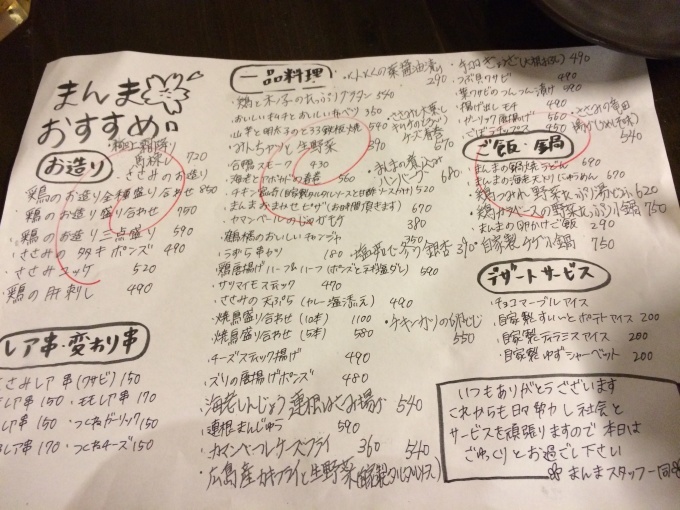 まんま
おすすめ
お造り
極上霜降り
馬刺し 720
ささみのお造り
鶏のお造り全種盛り合わせ 850
鶏のお造り盛り合わせ 750
鶏のお造り三点盛り 590
ささみのタタキポンズ 490
ささみユッケ 520
鶏の肝刺し 490
レア串・変わり串
ささみレア串(ワサビ) 150
レア串 150 ・モモレア串 170
串 150 ・つくねガーリック 150
レア串 170 ・つくねチーズ 150
一品料理
290
・鶏ときのこのたっぷりグラタン 540
・おいしいキムチとおいしいキャベツ 350
・山芋と明太子のとろろ鉄板焼 590
・みんちゃんと生野菜 390
・合鴨スモーク 430
・海老とアボカドの春巻 560
・まんまおまかせピザ(お時間頂きます) 670
・ヤマンベールのじゃがモチ 380
・鶴橋のおいしいチャンジャ 350
・うずら串有り 180
・鶏唐揚げハーフ&ハーフ(ポンズと和塩ダレ) 590
・サツマイモスティック 470
・ささみの天ぷら(カレー塩添え) 490
・焼鳥盛り合わせ(10本) 1100
・焼鳥盛り合わせ(5本) 580
・チーズスティック揚げ 490
・ズリの唐揚げポンズ 480
・海老しんじょう蓮根はさみ揚げ 540
・蓮根まんじゅう 590
・カマンベールチーズフライ 360 540
・広島産カキフライと生野菜(自家製タルタルソース)
チーズ春巻 670
・まんまの煮込み
ハンバーグ 680
550
490
・つぶ貝ワサビ 490
・茎ワサビのつんつん漬け 490
・揚げ出しモチ 490
・ガーリック唐揚げ 560
・ごぼうチップス 450
540
ご飯・鍋
・まんまの鍋焼うどん 690
・まんまの海老天とりじゃらめん 680
・鶏つみれ野菜たっぷり湯どうふ 620
・鶏ガラベースの野菜たっぷり鍋 750
・まんまの卵かけご飯 290
・自家製チゲ鍋 750
デザートサービス
・チョコマーブルアイス
・自家製すいーとポテトアイス 200
・自家製ティラミスアイス 200
・自家製ゆずシャーベット 200
いつもありがとうございます
これからも日々努力し社会と
サービスを頑張りますので本日は
ごゆっくりとお過ごし下さい
まんまスタッフ一同